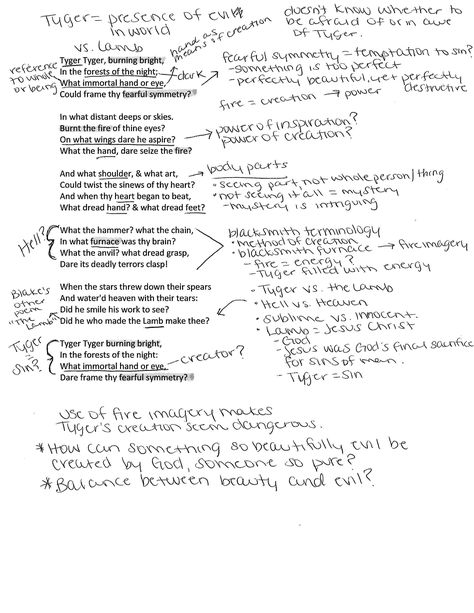 Tyger = presence of evil
in world
vs. Lamb
hand as
means of creation
doesn't know whether to
be afraid of or in awe
of Tyger.
reference
to whole
or being
Tyger Tyger, burning bright,
In the forests of the night;
What immortal hand or eye,
Could frame thy fearful symmetry?
dark
fearful symmetry = temptation to sin?
- something is too perfect
- perfectly beautiful, yet perfectly
destructive
fire = creation → power
In what distant deeps or skies.
Burnt the fire of thine eyes?
On what wings dare he aspire?
What the hand, dare seize the fire?
power of inspiration?
power of creation?
And what shoulder, & what art,
Could twist the sinews of thy heart?
And when thy heart began to beat,
What dread hand? & what dread feet?
body parts
- seeing part, not whole person/thing
• not seeing it all = mystery
- mystery is intriguing
Hell?
What the hammer? what the chain,
In what furnace was thy brain?
What the anvil? what dread grasp,
Dare its deadly terrors clasp!
blacksmith terminology
• method of creation
• blacksmith furnace → fire imagery
- fire = energy?
- Tyger filled with energy
Blake's
other
poem
"The
Lamb"
When the stars threw down their spears
And water'd heaven with their tears:
Did he smile his work to see?
Did he who made the Lamb make thee?
- Tyger vs. the Lamb
• Hell vs. Heaven
• sublime vs. innocent.
• Lamb = Jesus Christ
- God
- Jesus was God's final sacrifice
for sins of man.
- Tyger = sin
Tyger
=
sin?
Tyger Tyger burning bright,
In the forests of the night:
What immortal hand or eye,
Dare frame thy fearful symmetry?
creator?
use of fire imagery makes
Tyger's creation seem dangerous.
* How can something so beautifully evil be
created by God, someone so pure?
* Balance between beauty and evil?